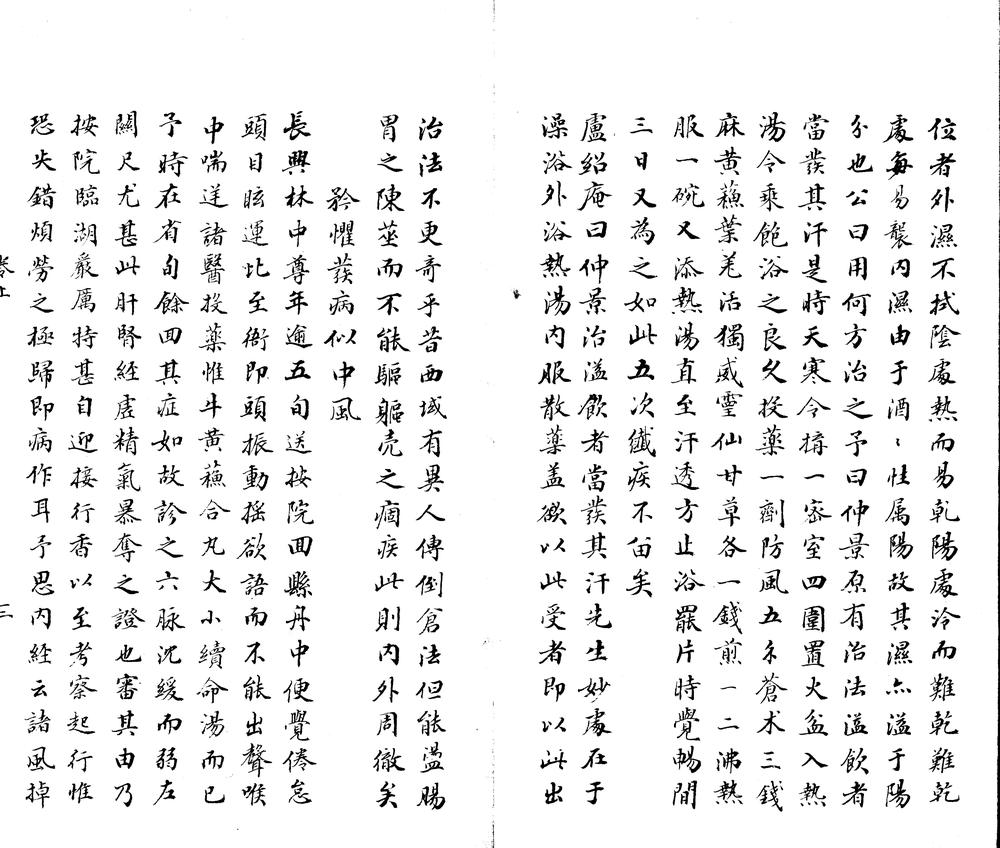 位者外濕不拭陰處熱而易乾陽處冷而難乾難乾
處每易襲内濕由于酒〻性属陽故其濕亦溢于陽
分也公曰用何方治之予曰仲景原有治法溢飲者
當蕟其汗是時天寒令揹一宻室四圍置火盆入熱
湯令乘飽浴之良久投藥一劑防風五㡿蒼术三錢
麻黄蘓葉羌活獨威靈仙甘草各一錢煎一二沸熱
服一碗又添熱湯直至汗透方止浴罷片時覺暢間
三日又為之如此五次纎疾不畱矣
盧紹庵曰仲景治溢飲者當蕟其汗先生妙處在于
澡浴外浴熱湯内服散藥盖欲以此受者即以此出
治法不更奇乎昔西域有異人傳倒倉法但能盪腸
胃之陳莝而不能驅軀壳之痼疾此則内外周徹矣
矜懼蕟病似中風
長興林中尊年逾五旬送按院回縣舟中便覺倦怠
頭目眩運比至衙即頭振動揺欲語而不能出聲喉
中喘逆諸醫投藥惟牛黄蘓合丸大小續命湯而已
予時在省旬餘回其症如故診之六脉沉緩而弱左
關尺尤甚此肝腎經虛精氣暴奪之證也審其由乃
按院臨湖嚴厲特甚自迎接行香以至考察起行惟
恐失錯煩勞之極歸即病作耳予思内経云諸風掉
三